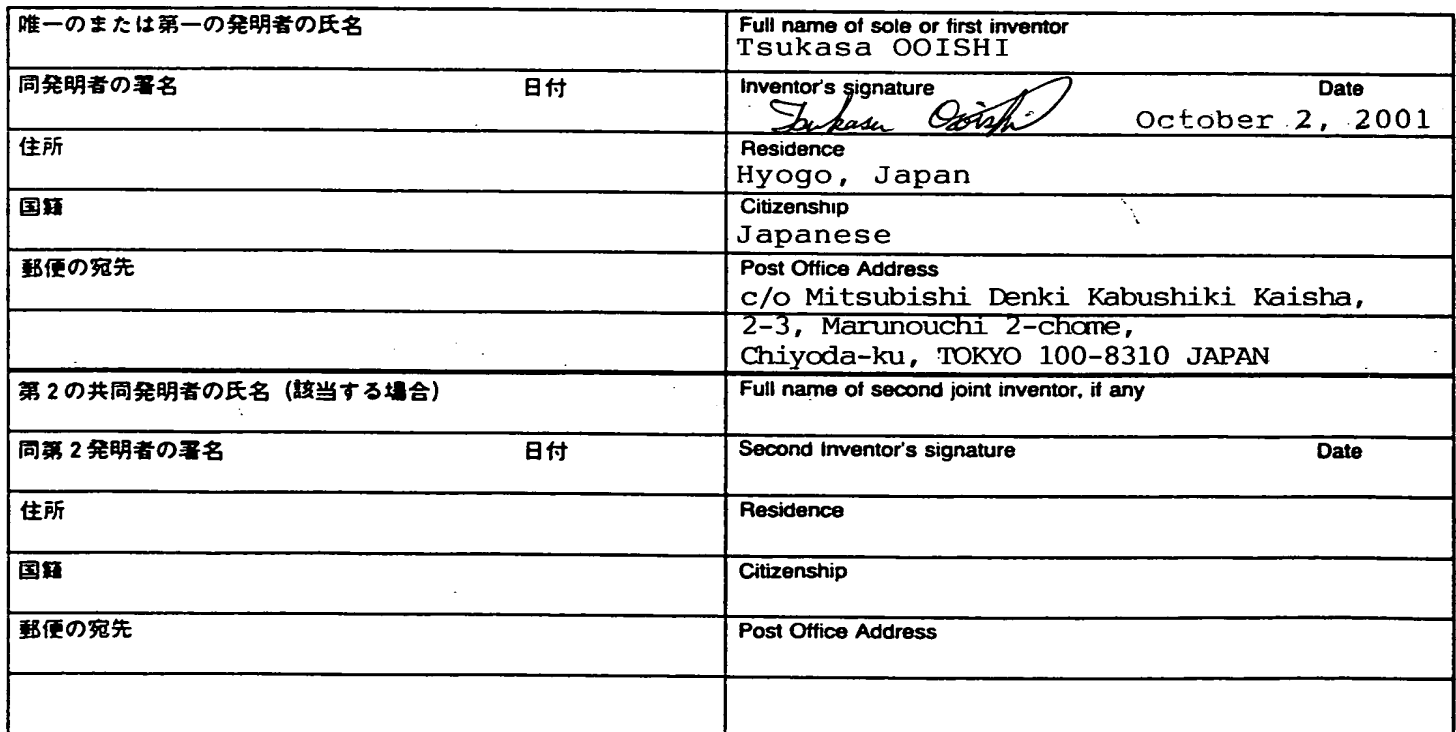 唯一のまたは第一の発明者の氏名
Full name of sole or first inventor
Tsukasa OOISHI
同発明者の署名 日付
Inventor's signature Date
Tsukasa Ooishi October 2, 2001
住所
Residence
Hyogo, Japan
国籍
Citizenship
Japanese
郵便の宛先
Post Office Address
c/o Mitsubishi Denki Kabushiki Kaisha,
2-3, Marunouchi 2-chome,
Chiyoda-ku, TOKYO 100-8310 JAPAN
第2の共同発明者の氏名 (該当する場合)
Full name of second joint inventor, if any
同第2発明者の署名 日付
Second Inventor's signature Date
住所
Residence
国籍
Citizenship
郵便の宛先
Post Office Address